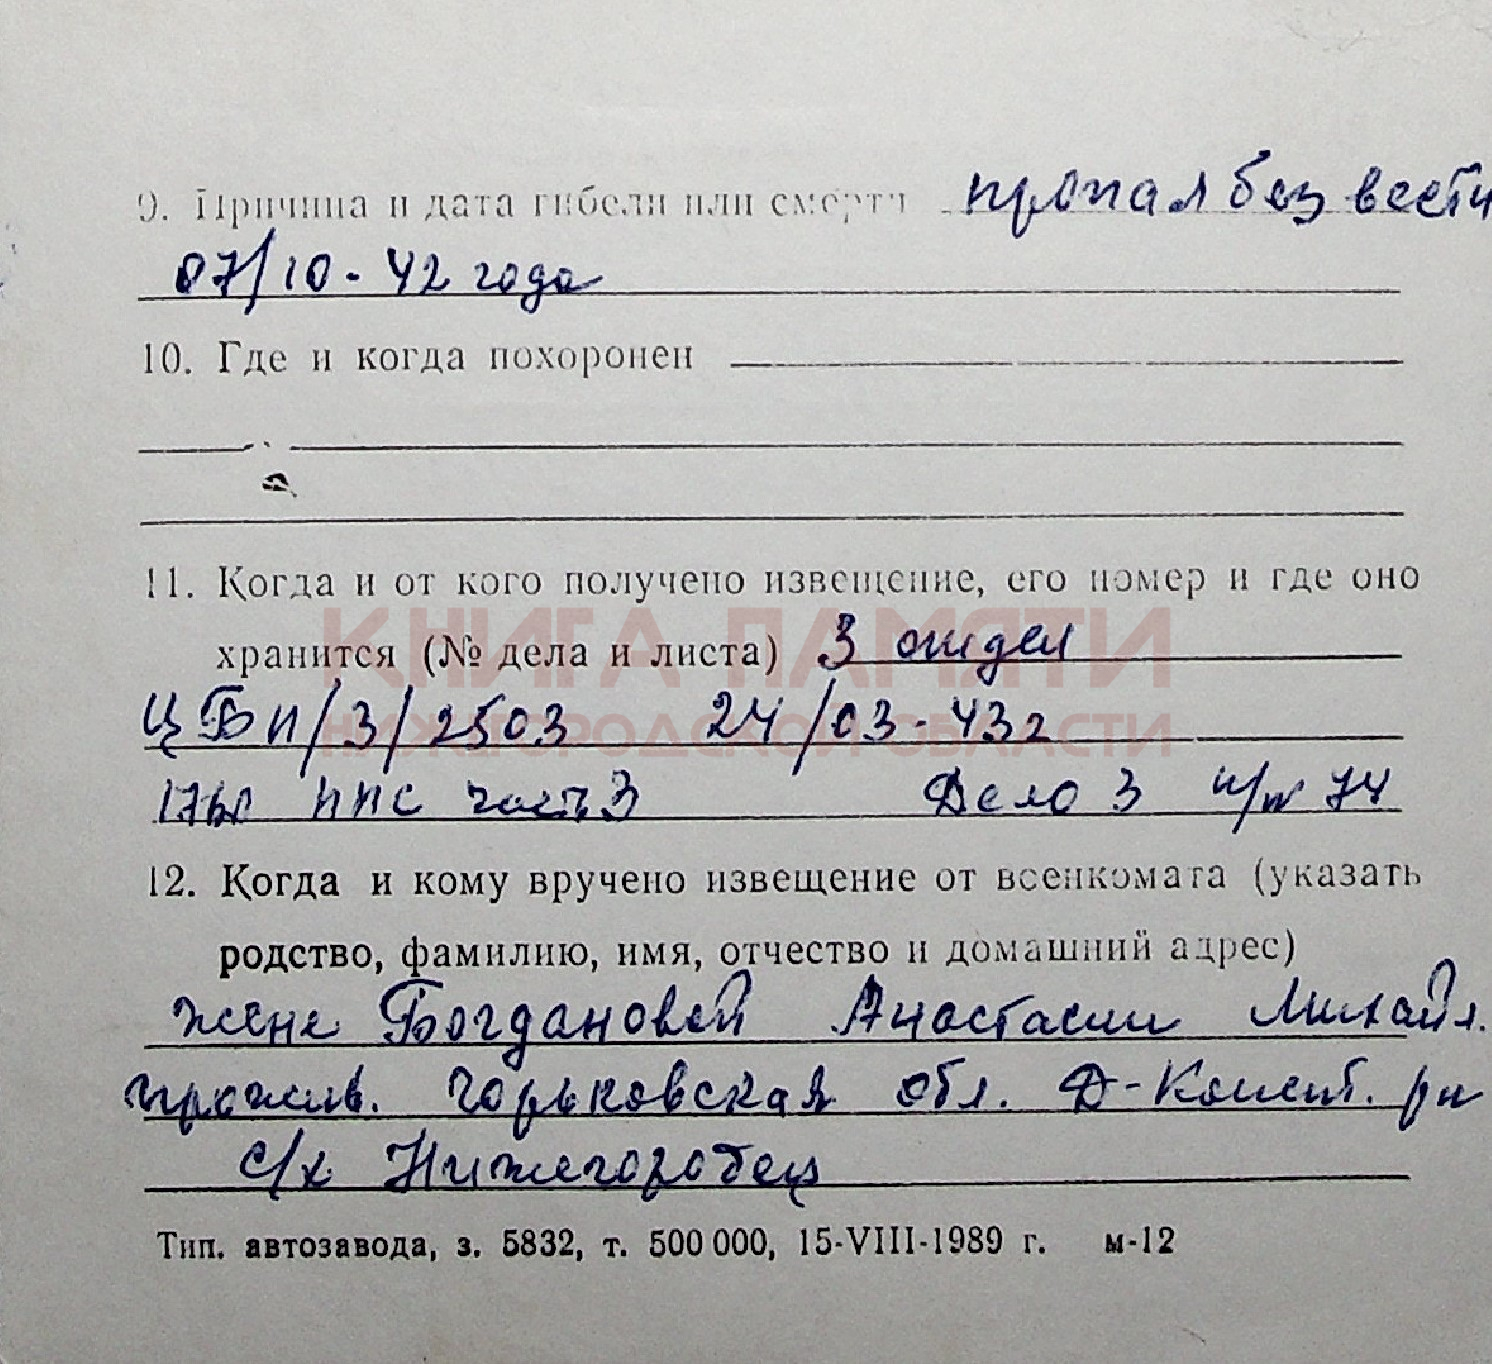 9. Причина и дата гибели или смерти пропал без вести
07/10-42 года
10. Где и когда похоронен
11. Когда и от кого получено извещение, его номер и где оно
хранится (№ дела и листа) 3 отдел
КНИГА ПАМЯТИ
ЦБП/3/2503 24/03-43г
НИЖЕГОРОДСКОЙ ОБЛАСТИ
ППС часть 3 Дело 3 74
12. Когда и кому вручено извещение от военкомата (указать
родство, фамилию, имя, отчество и домашний адрес)
жене Богдановой Анастасии Михайл.
прожив. Горьковская обл. Д-Конст. рн
с/х Нижегородец
Тип. автозавода, з. 5832, т. 500 000, 15-VIII-1989 г. м-12